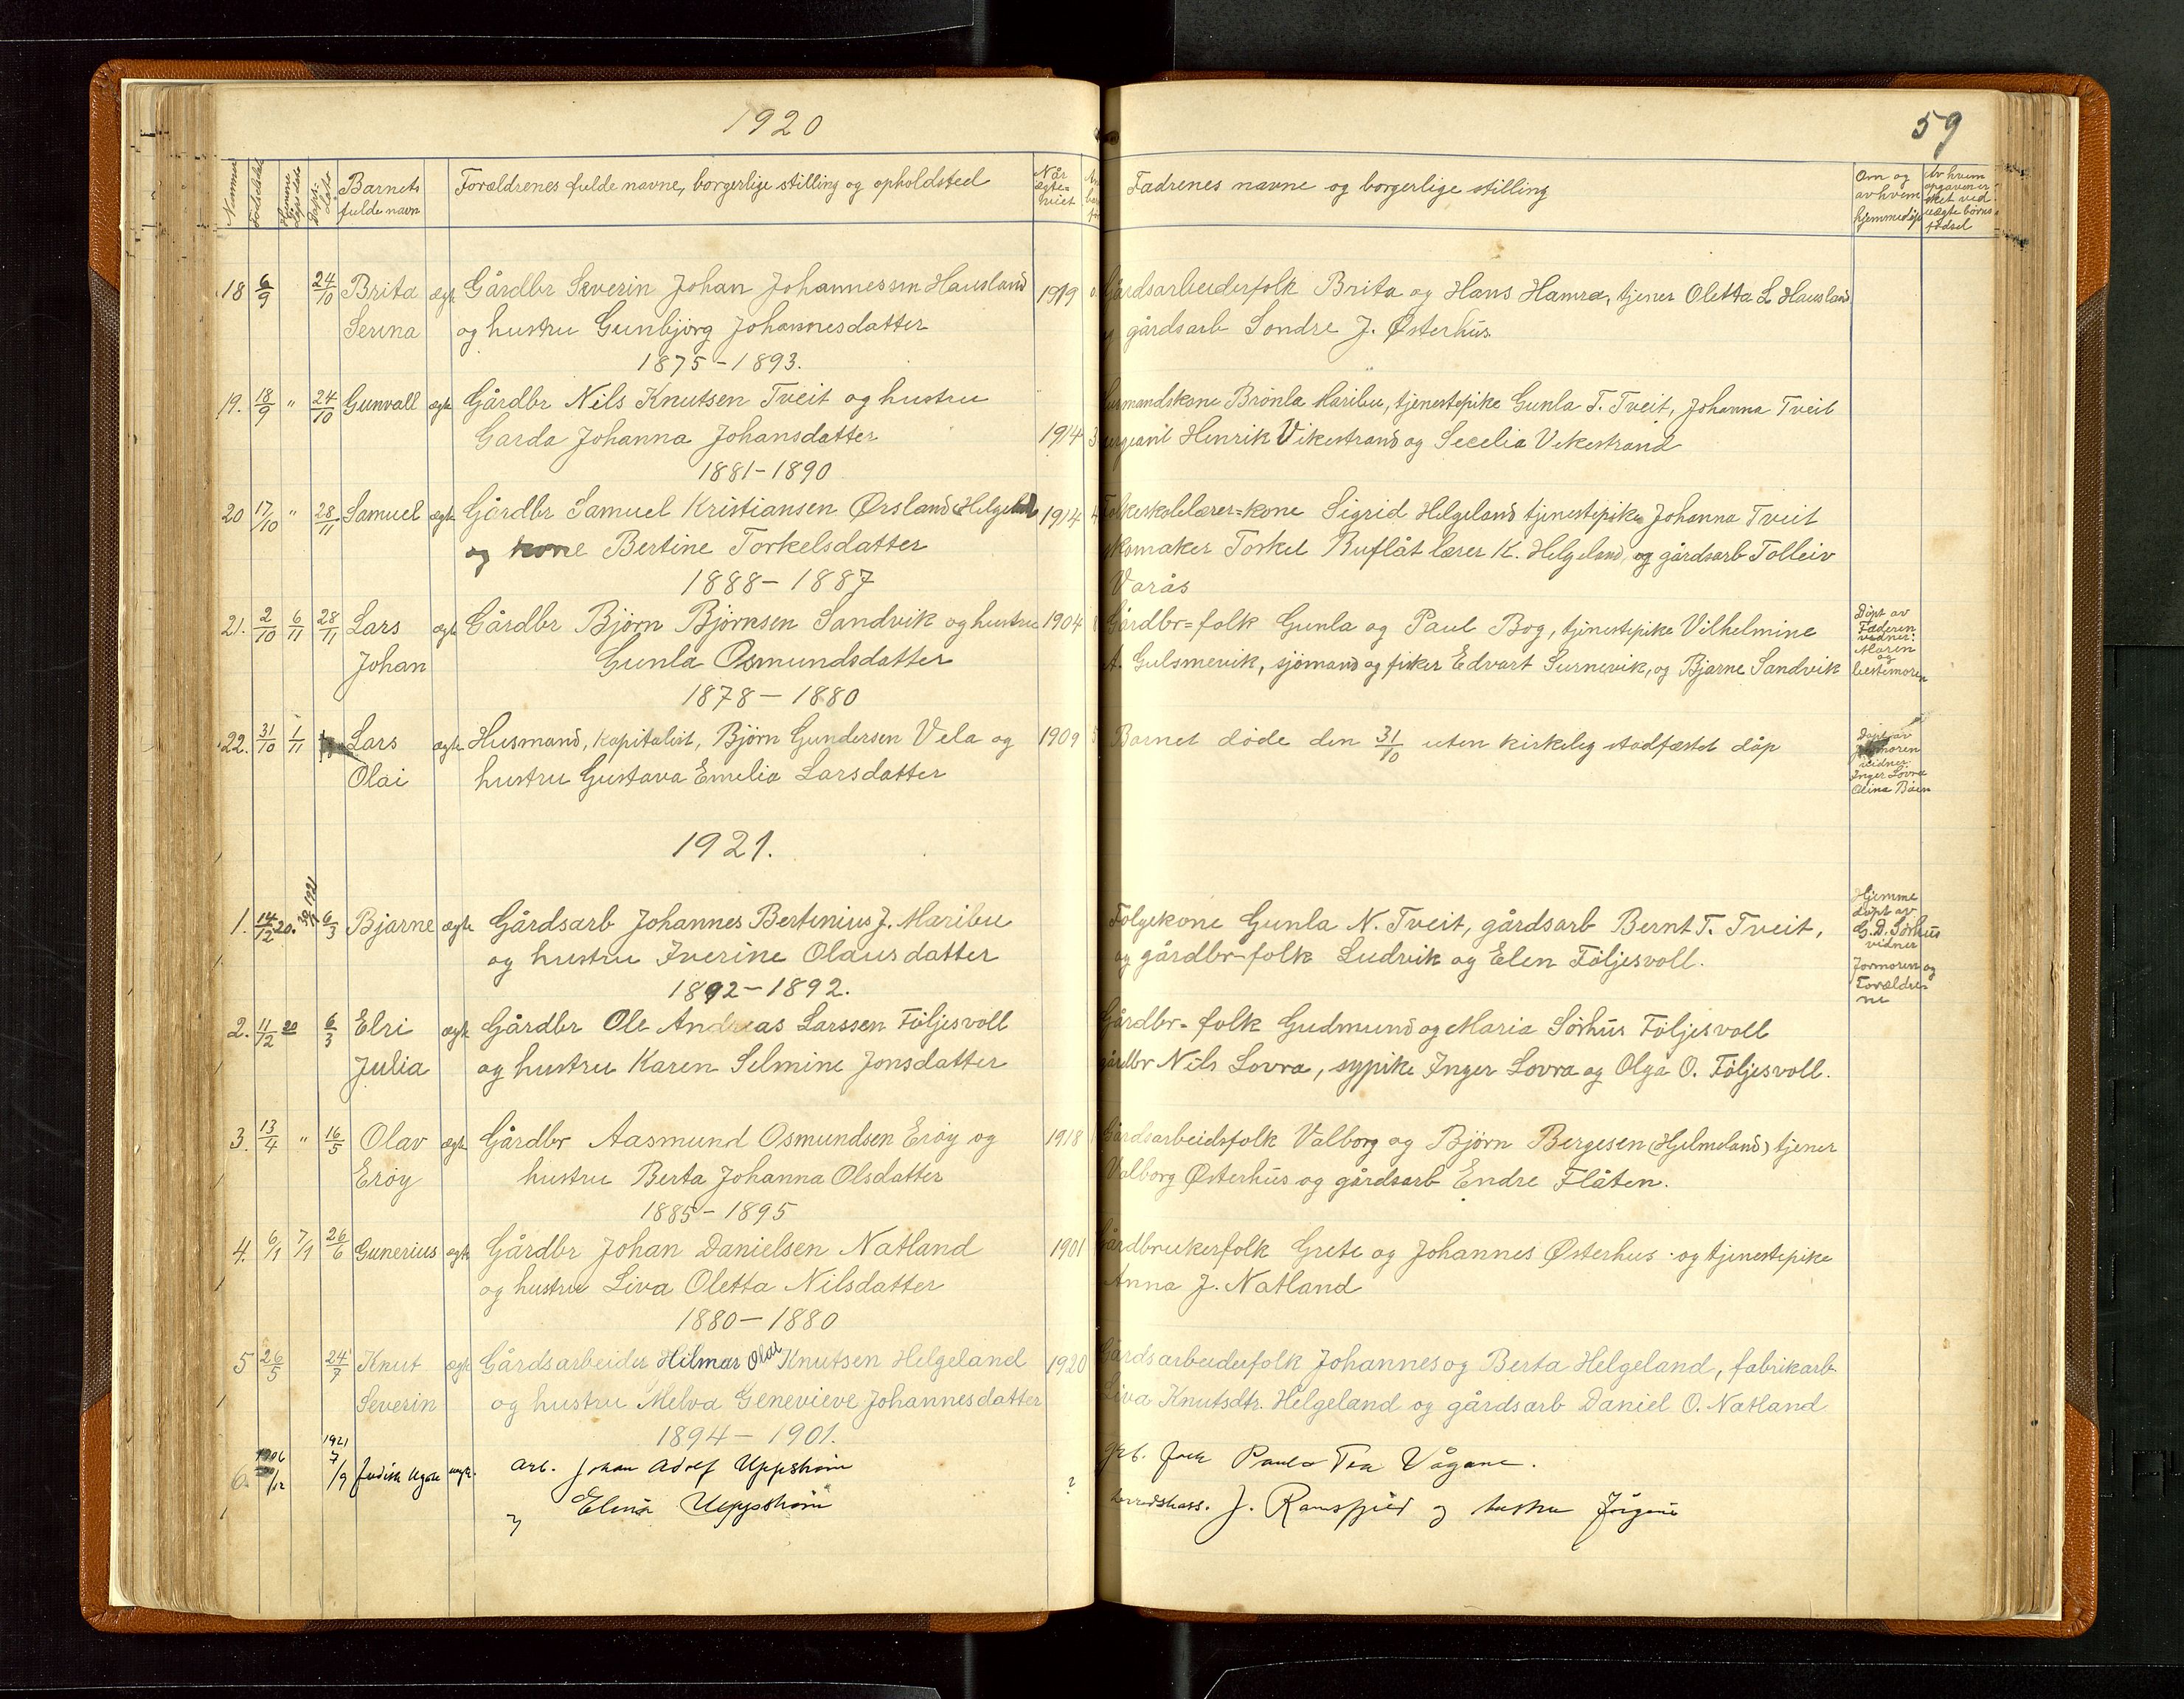 1920
59
Nummer
Fødselsdato
Hjemme døpt dato
Daps-dato
Barnets fulde navn
Forældrenes fulde navne, borgerlige stilling og opholdsted
Når ægte-viet
Fadrenes navne og borgerlige stilling
Om og av hvem hjemmedøpt
Av hvem opgaven er sket ved uægte børns fødsel
18 6/9 24/10 Brita ægte Gårdbr Severin Johan Johannessen Hausland 1919 Gårdsarbeiderfolk Brita og Hans Hamra, tjener Oletta L Hausland
Serina og hustru Gunbjørg Johannesdatter og gårdsarb Sondre J. Østerhus
1875-1893.
19. 18/9 " 24/10 Gunvall ægte Gårdbr Nils Knutsen Tveit og hustru Brönla Maribu, tjenestepike Gunla T. Tveit, Johanna Tveit
Garda Johanna Johansdatter 1914 Henrik Vikestrand og Secelia Vikestrand
1881-1890
20 17/10 " 28/11 Samuel ægte Gårdbr Samuel Kristiansen Ørsland (Helgeland 1914 4 Folkeskolelærer=kone Sigrid Helgeland tjenestepike Johanna Tveit
og kone Bertine Torkelsdatter skomaker Torkel Buflåt lærer K. Helgeland, og gårdsarb Tolleiv
1888-1887 Varås
21. 2/10 6/11 28/11 Lars ægte Gårdbr Bjørn Bjørnsen Sandvik og hustru 1904 8 Gårdbr=folk Gunla og Paul Bog, tjenestepike Vilhelmine
Johan Gunla Osmundsdatter A. Gulsmevik, sjömand og fisker Edvart Surnevik, og Bjarne Sandvik
1878-1880
Döpt av Faderen vidner: Moren og bestemoren
22. 31/10 1/11 Lars ægte Husmand, Kapitalist, Bjørn Gundersen Vela og 1909 5 Barnet döde den 31/10 uten kirkelig stadfæstet dåp
Olai hustru Gustava Emelia Larsdatter
Döpt av vidner: Inger Lovra Olina Bøen
1921.
1. 14/12 20. 1921 6/3 Bjarne ægte Gårdsarb Johannes Bertinius J. Maribu Folgekone Gunla N. Tveit, gårdsarb Bernt T. Tveit,
og hustru Iverine Olausdatter og gårdbr-folk Ludvik og Elen Följesvoll.
1892-1892.
Hjemme døpt av G. D. Sørhus vidner Jormoren og Forældrene
2. 11/12 20 6/3 Elri ægte Gårdbr Ole Andreas Larssen Följesvoll Gårdbr- folk Gudmund og Maria Sörhus Följesvoll
Julia og hustru Karen Selmine Jonsdatter gårdbr Nils Lovra, sypike Inger Lovra og Olga O. Följesvoll.
3. 13/4 " 16/5 Olav ægte Gårdbr Aasmund Osmundsen Erøy og 1918 Gårdsarbeidsfolk Valborg og Björn Bergesen (Hjelmeland) tjener
Erøy hustru Berta Johanna Olsdatter Valborg Østerhus og gårdsarb Endre Flåten.
1885-1895
4. 6/1 7/1 26/6 Gunerius ægte Gårdbr Johan Danielsen Natland 1901 Gårdbrukerfolk Grete og Johannes Østerhus og tjenestepike
og hustru Liva Oletta Nilsdatter Anna J. Natland
1880-1880
5 26/5 24/7 Knut ægte Gårdsarbeider Hilmar Olai Knutsen Helgeland 1920 Gårdsarbeiderfolk Johannes og Berta Helgeland, fabrikarb
Severin og hustru Melva Genevieve Johannesdatter Liva Knutsdtr. Helgeland og gårdsarb Daniel O. Natland
1894-1901.
6. 1906 /12 1921 7/9 Judith arb. Johan Adolf Uppstrøm ? Paul Tea Vågane.
og Elena Uppstrøm J. Ramsfjell og hustru Jørgine